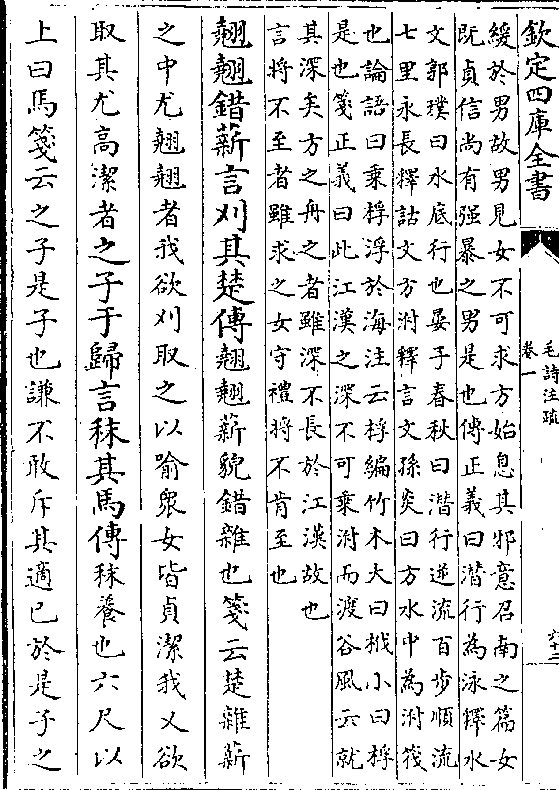 欽定四庫全書
毛詩注疏
卷一
六十二
緩於男故男見女不可求方始息其邪意召南之篇女
既貞信尚有强暴之男是也傳正義曰潛行為泳釋水
文郭璞曰水底行也晏子春秋曰潛行逆流百步順流
七里永長釋詁文方泭釋言文孫炎曰方水中為泭筏
也論語曰乗桴浮於海注云桴編竹木大曰栰小曰桴
是也箋正義曰此江漢之深不可乗泭而渡谷風云就
其深矣方之舟之者雖深不長於江漢故也
言將不至者雖求之女守禮將不肯至也
翹翹錯薪言刈其楚傳翹翹薪貌錯雜也箋云楚雜薪
之中尤翹翹者我欲刈取之以喻衆女皆貞潔我又欲
取其尤高潔者之子于歸言秣其馬傳秣養也六尺以
上曰馬箋云之子是子也謙不敢斥其適已於是子之